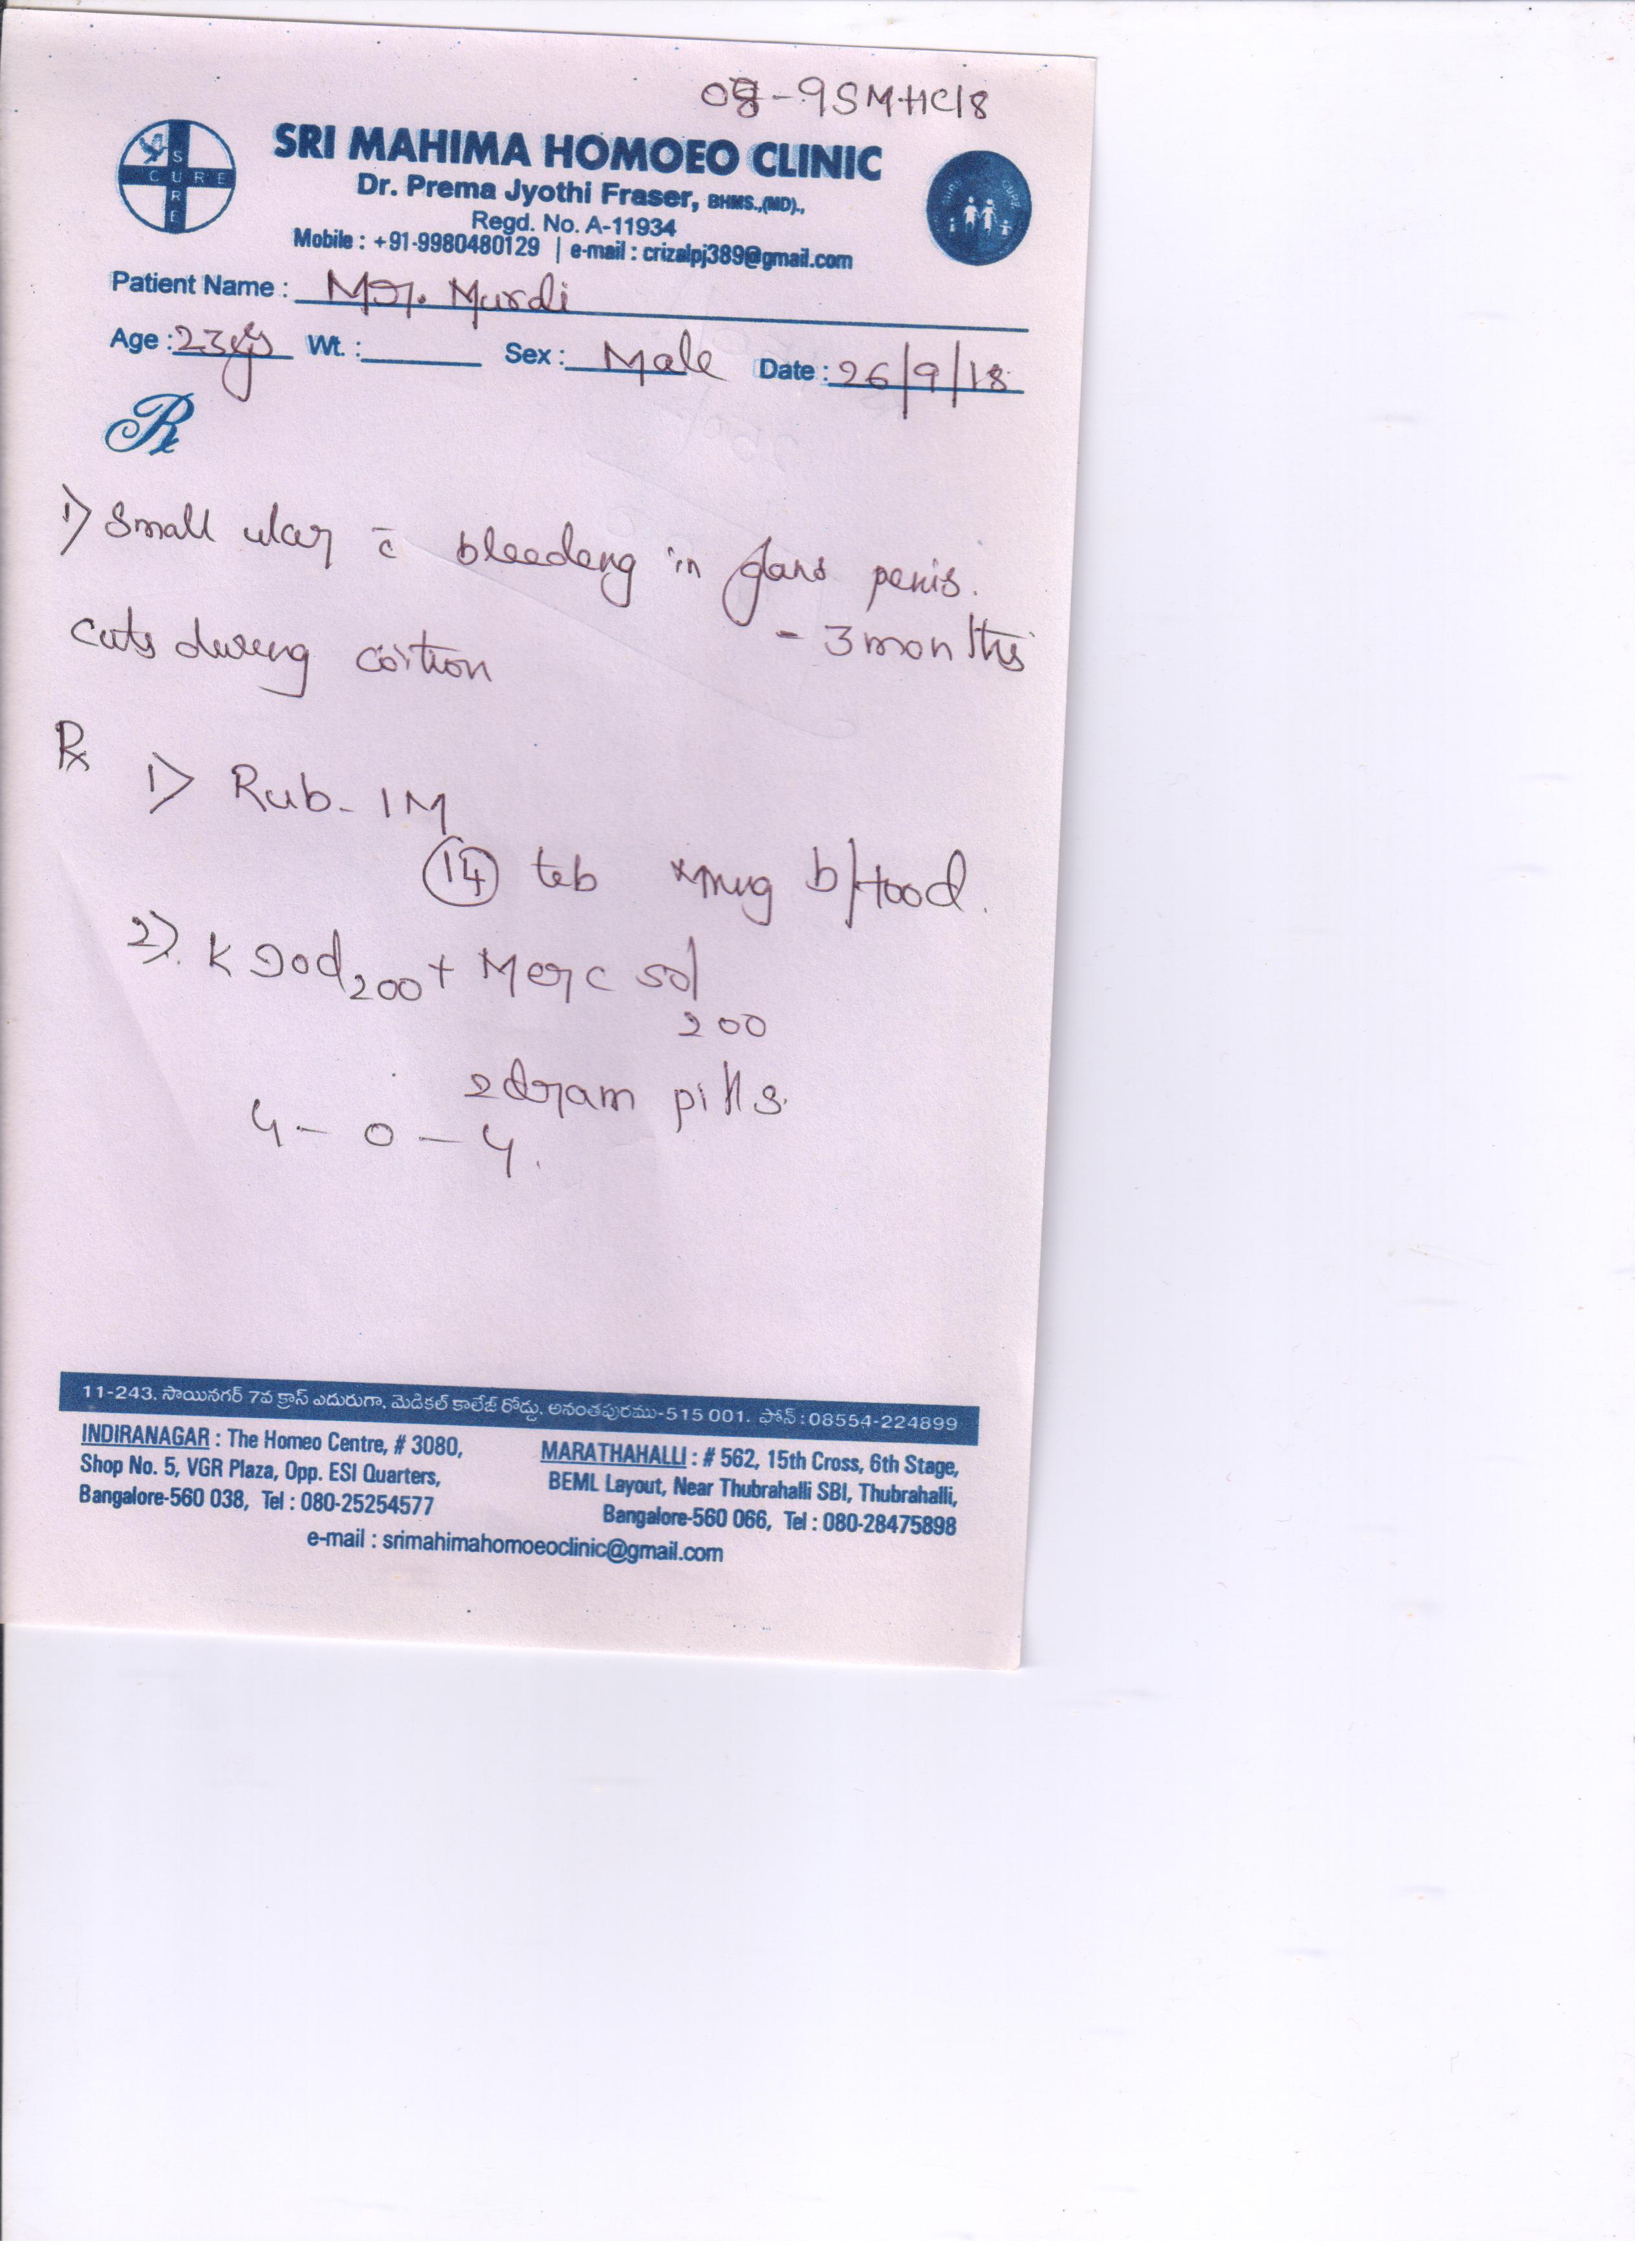 08-9SMHC18
SURE
CURE
SRI MAHIMA HOMOEO CLINIC
Dr. Prema Jyothi Fraser, BHMS.,(MD).,
Regd. No. A-11934
Mobile : +91-9980480129 | e-mail : crizalpj389@gmail.com
Patient Name : Mr. Murdi
Age : 23yrs Wt. : Sex : Male Date : 26/9/18
Rx
1) Small ulcer c̄ bleeding in glans penis.
- 3 months
cuts during coition
Rx
1) Rub- 1M
14 tab b/food.
2). K Iod 200 + Merc sol 200
2dram pills.
4 - 0 - 4.
11-243, సాయినగర్ 7వ క్రాస్ ఎదురుగా, మెడికల్ కాలేజ్ రోడ్డు, అనంతపురము-515 001. ఫోన్ : 08554-224899
INDIRANAGAR : The Homeo Centre, # 3080,
Shop No. 5, VGR Plaza, Opp. ESI Quarters,
Bangalore-560 038, Tel : 080-25254577
MARATHAHALLI : # 562, 15th Cross, 6th Stage,
BEML Layout, Near Thubrahalli SBI, Thubrahalli,
Bangalore-560 066, Tel : 080-28475898
e-mail : srimahimahomoeoclinic@gmail.com